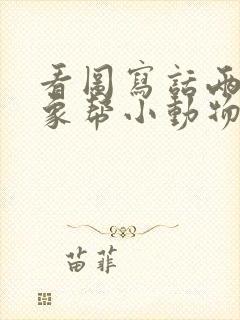 看圖寫話兩
象幫小動物
苗菲